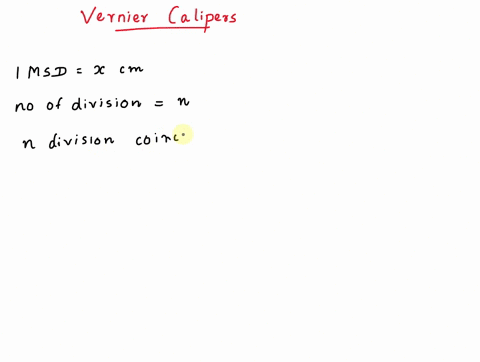 Vernier Calipers
1 MSD = x cm
no of division = n
n division coinc